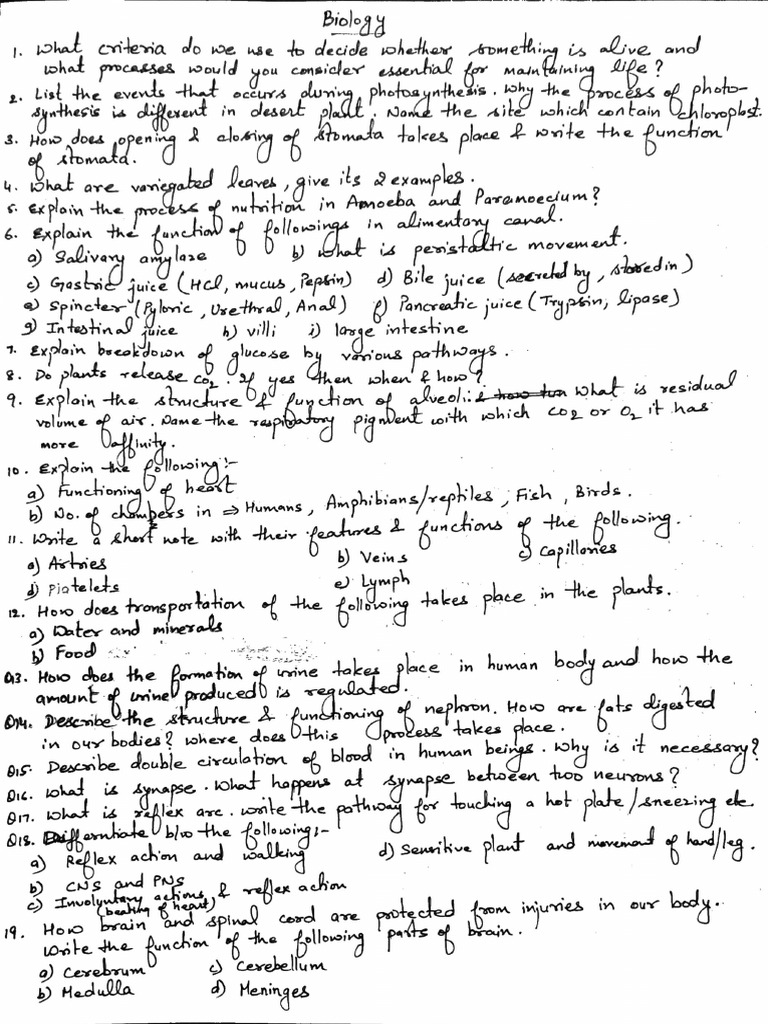 Biology
1. What criteria do we use to decide whether something is alive and
what processes would you consider essential for maintaining life?
2. List the events that occurs during photosynthesis. Why the process of photo-
synthesis is different in desert plant. Name the site which contain chloroplast.
3. How does opening & closing of stomata takes place & write the function
of stomata.
4. What are variegated leaves, give its 2 examples.
5. Explain the process of nutrition in Amoeba and Paramoecium?
6. Explain the function of followings in alimentary canal.
a) Salivary amylase b) what is peristaltic movement.
c) Gastric juice (HCl, mucus, Pepsin) d) Bile juice (secreted by, stored in)
e) Spincter (Pyloric, Urethral, Anal) f) Pancreatic juice (Trypsin, lipase)
g) Intestinal juice h) villi i) large intestine
7. Explain breakdown of glucose by various pathways.
8. Do plants release CO2. If yes then when & how?
9. Explain the structure & function of alveoli. & how What is residual
volume of air. Name the respiratory pigment with which CO2 or O2 it has
more affinity.
10. Explain the following:-
a) Functioning of heart
b) No. of chambers in ⇒ Humans, Amphibians/reptiles, Fish, Birds.
11. Write a short note with their features & functions of the following.
a) Artries b) Veins c) Capillaries
d) Platelets e) Lymph
12. How does transportation of the following takes place in the plants.
a) Water and minerals
b) Food
Q13. How does the formation of urine takes place in human body and how the
amount of urine produced is regulated.
Q14. Describe the structure & functioning of nephron. How are fats digested
in our bodies? where does this process takes place.
Q15. Describe double circulation of blood in human beings. Why is it necessary?
Q16. What is synapse. What happens at synapse between two neurons?
Q17. What is reflex arc. write the pathway for touching a hot plate/sneezing etc.
Q18. Differntiate b/w the following:-
a) Reflex action and walking d) Sensitive plant and movement of hand/leg.
b) CNS and PNS
c) Involuntary actions & reflex action
(beating of heart)
19. How brain and spinal cord are protected from injuries in our body.
Write the function of the following parts of brain.
a) Cerebrum c) Cerebellum
b) Medulla d) Meninges